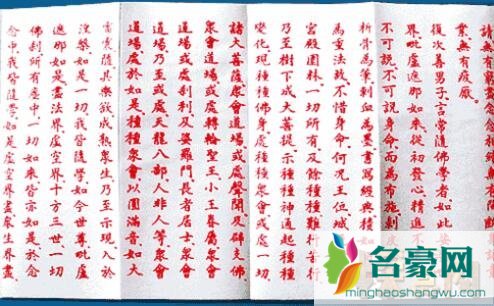 請無有窮盡念念相續無有間斷
業無有疲厭
復次善男子言常隨佛學者如此娑
界毗盧遮那如來從初發心精進
不可說不可說身命而為布施剝
析骨為筆刺血為墨書寫經典積
為重法故不惜身命何況王位城
宮殿園林一切所有及餘種種難行苦行
乃至樹下成大菩提示種種神通起種種
變化現種種佛身處種種眾會或處一切
諸大菩薩眾會道場或處聲聞及辟支佛
眾會道場或處轉輪聖王小王眷屬眾會
道場或處剎利及婆羅門長者居士眾會
道場乃至或處天龍八部人非人等眾會
道場處於如是種種眾會以圓滿音如大
雷震隨其樂欲成熟眾生乃至示現入於
涅槃如是一切我皆隨學如今世尊毗盧
遮那如是盡法界虛空界十方三世一切
佛剎所有塵中一切如來皆亦如是於念
念中我皆隨學如是虛空界盡眾生界盡
名豪网
minghaoshangwu.com